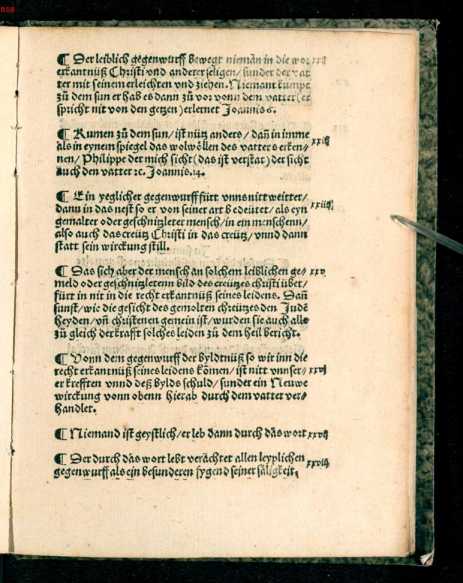 ¶ Der leiblich gegenwurff bewegt nieman in die wor xxii
erkantnüß Christi vnd anderer seligen/ sunder der vat
ter mit seinem erleichten vnd ziehen. Niemant kumpt
zů dem sun er hab es dann zů vor vonn dem vatter (es
spricht nit von den getzen) erlernet Joannis 6.
¶ Kumen zů dem sun/ ist nütz anders/ dañ in imme xxiij
als in eynem spiegel das wolwöllen des vatters erken=
nen/ Philippe der mich sicht (das ist verstat) der sicht
auch den vatter ꝛc. Joannis.14.
¶ Ein yeglicher gegenwurff fürt vnns nitt weitter/
dann in das nest so er von seiner art bedeütet/ als eyn xxiiij
gemalter oder geschnizleter mensch/ in ein menschenn/
also auch das creütz Christi in das creütz/ vnnd dann
statt sein wirckung still.
¶ Das sich aber der mensch an solchem leiblichen ge= xxv
meld oder geschnizletenn bild des creützes christi übet/
fürt in nit in die recht erkantnüß seines leidens. Dañ
sunst/ wie die gesicht des gemolten chreützes den Jude
heyden/ vñ christenen gemein ist/ wurden sie auch alle
zů gleich der krafft solches leiden zů dem heil bericht.
¶ Vonn dem gegenwurff der byldtnüß so wir inn die
recht erkantnüß seines leidens kömen/ ist nitt vnnser xxvj
er krefften vnnd deß bylds schuld/ sunder ein Neuwe
wirckung vonn obenn hierab durch dem vatter ver=
handlet.
¶ Niemand ist geystlich/ er leb dann durch das wort xxvij
¶ Der durch das wort lebt verachtet allen leyplichen xxviij
gegenwurff als ein besunderen fygend seiner säligkeit.